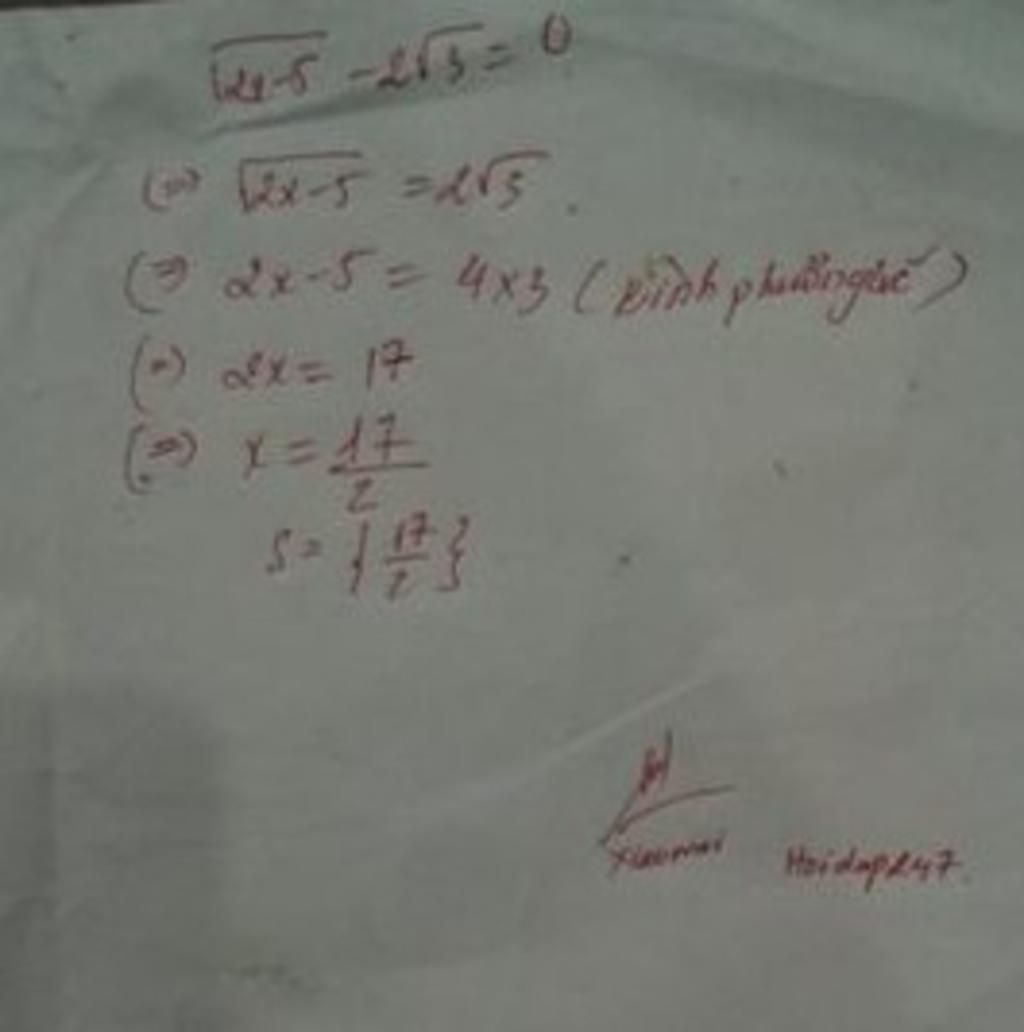 √2x-5 - 2√3 = 0
(=) √2x-5 = 2√3.
(=) 2x-5 = 4x3 (Bình phương 2 vế)
(=) 2x = 17
(=) x = 17/2
S = {17/2}
Hoidap247.